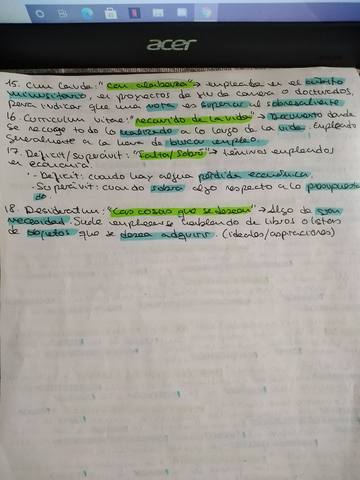 acer
15. Cum Lauda: "con alabanza" → empleada en el ámbito
universitario, en proyectos de fin de carrera o doctorados,
para indicar que una nota es superior al sobresaliente
16. Curriculum vitae: "recorrido de la vida" → Documento donde
se recoge todo lo realizado a lo largo de la vida. Empleado
generalmente a la hora de buscar empleo.
17. Deficit/superávit: "Falta/sobra" → términos empleados
en economía.
- Deficit: cuando hay alguna pérdida económica.
- Superávit: cuando sobra algo respecto a lo presupuesta
do.
18. Desideratum: "Las cosas que se desean" → Algo de gran
necesidad. Suele emplearse hablando de libros o listas
de objetos que se desea adquirir. (ideales/aspiraciones)